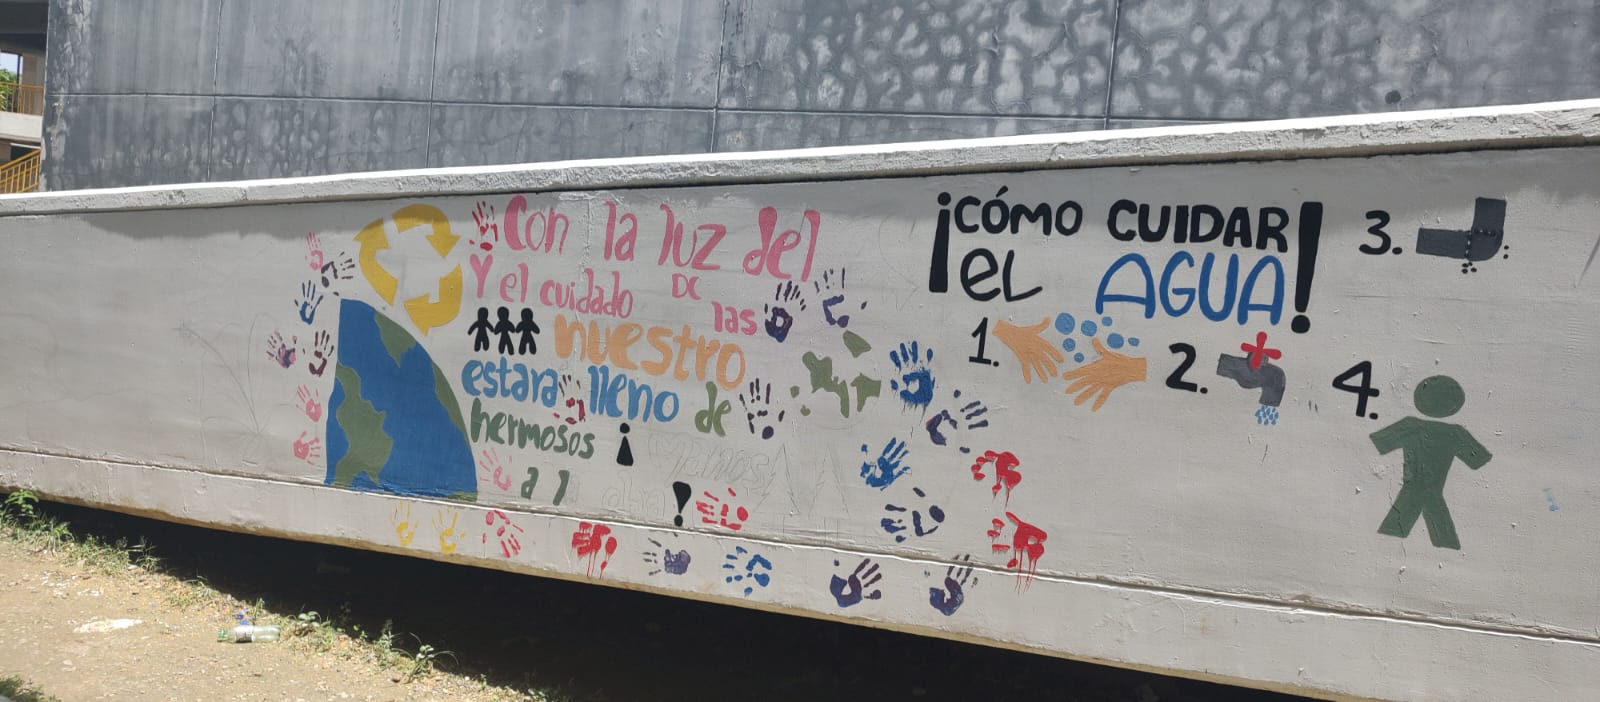 Con la luz del
Y el cuidado DE las
nuestro
estara lleno de
hermosos
¡
a 1
!
¡CÓMO CUIDAR
EL AGUA!
1.
2.
3.
4.